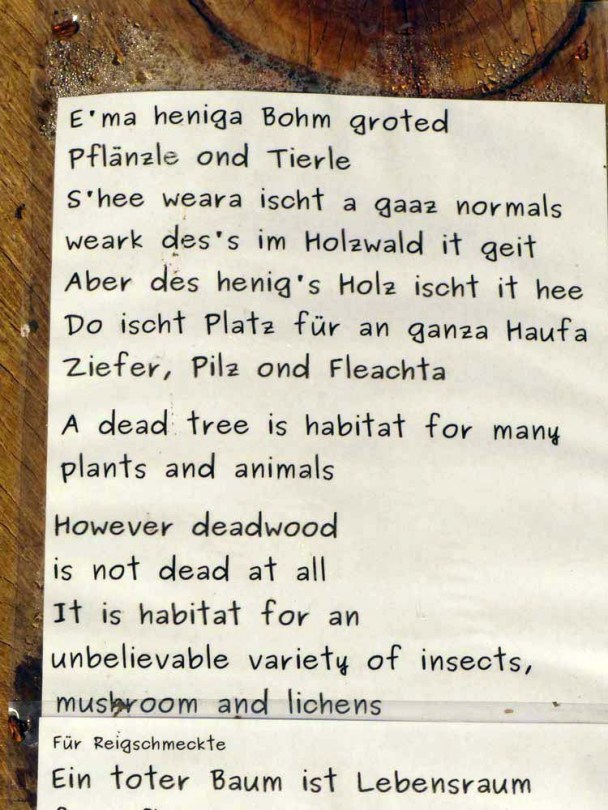 E'ma heniga Bohm groted
Pflänzle ond Tierle
S'hee weara ischt a gaaz normals
weark des's im Holzwald it geit
Aber des henig's Holz ischt it hee
Do ischt Platz für an ganza Haufa
Ziefer, Pilz ond Fleachta
A dead tree is habitat for many
plants and animals
However deadwood
is not dead at all
It is habitat for an
unbelievable variety of insects,
mushroom and lichens
Für Reigschmeckte
Ein toter Baum ist Lebensraum